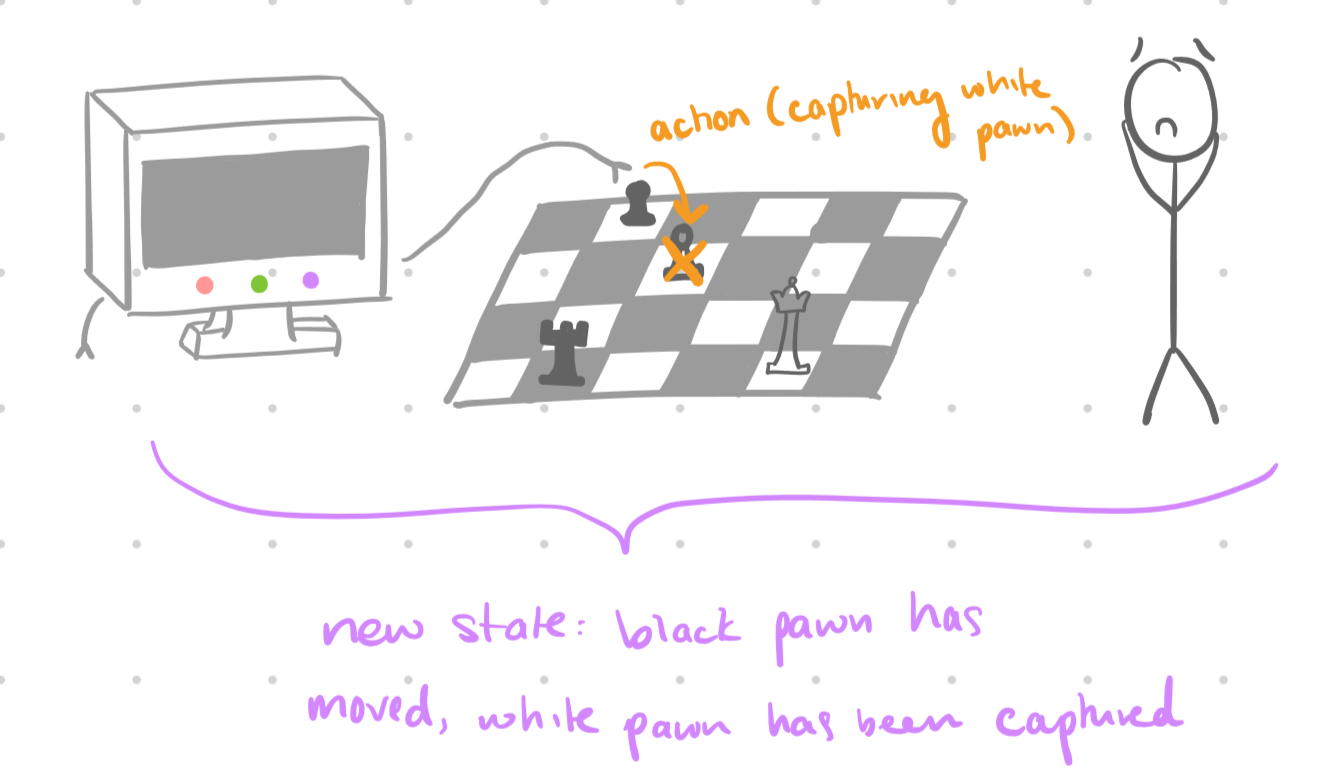 action (capturing white
pawn)
new state: black pawn has
moved, white pawn has been captured